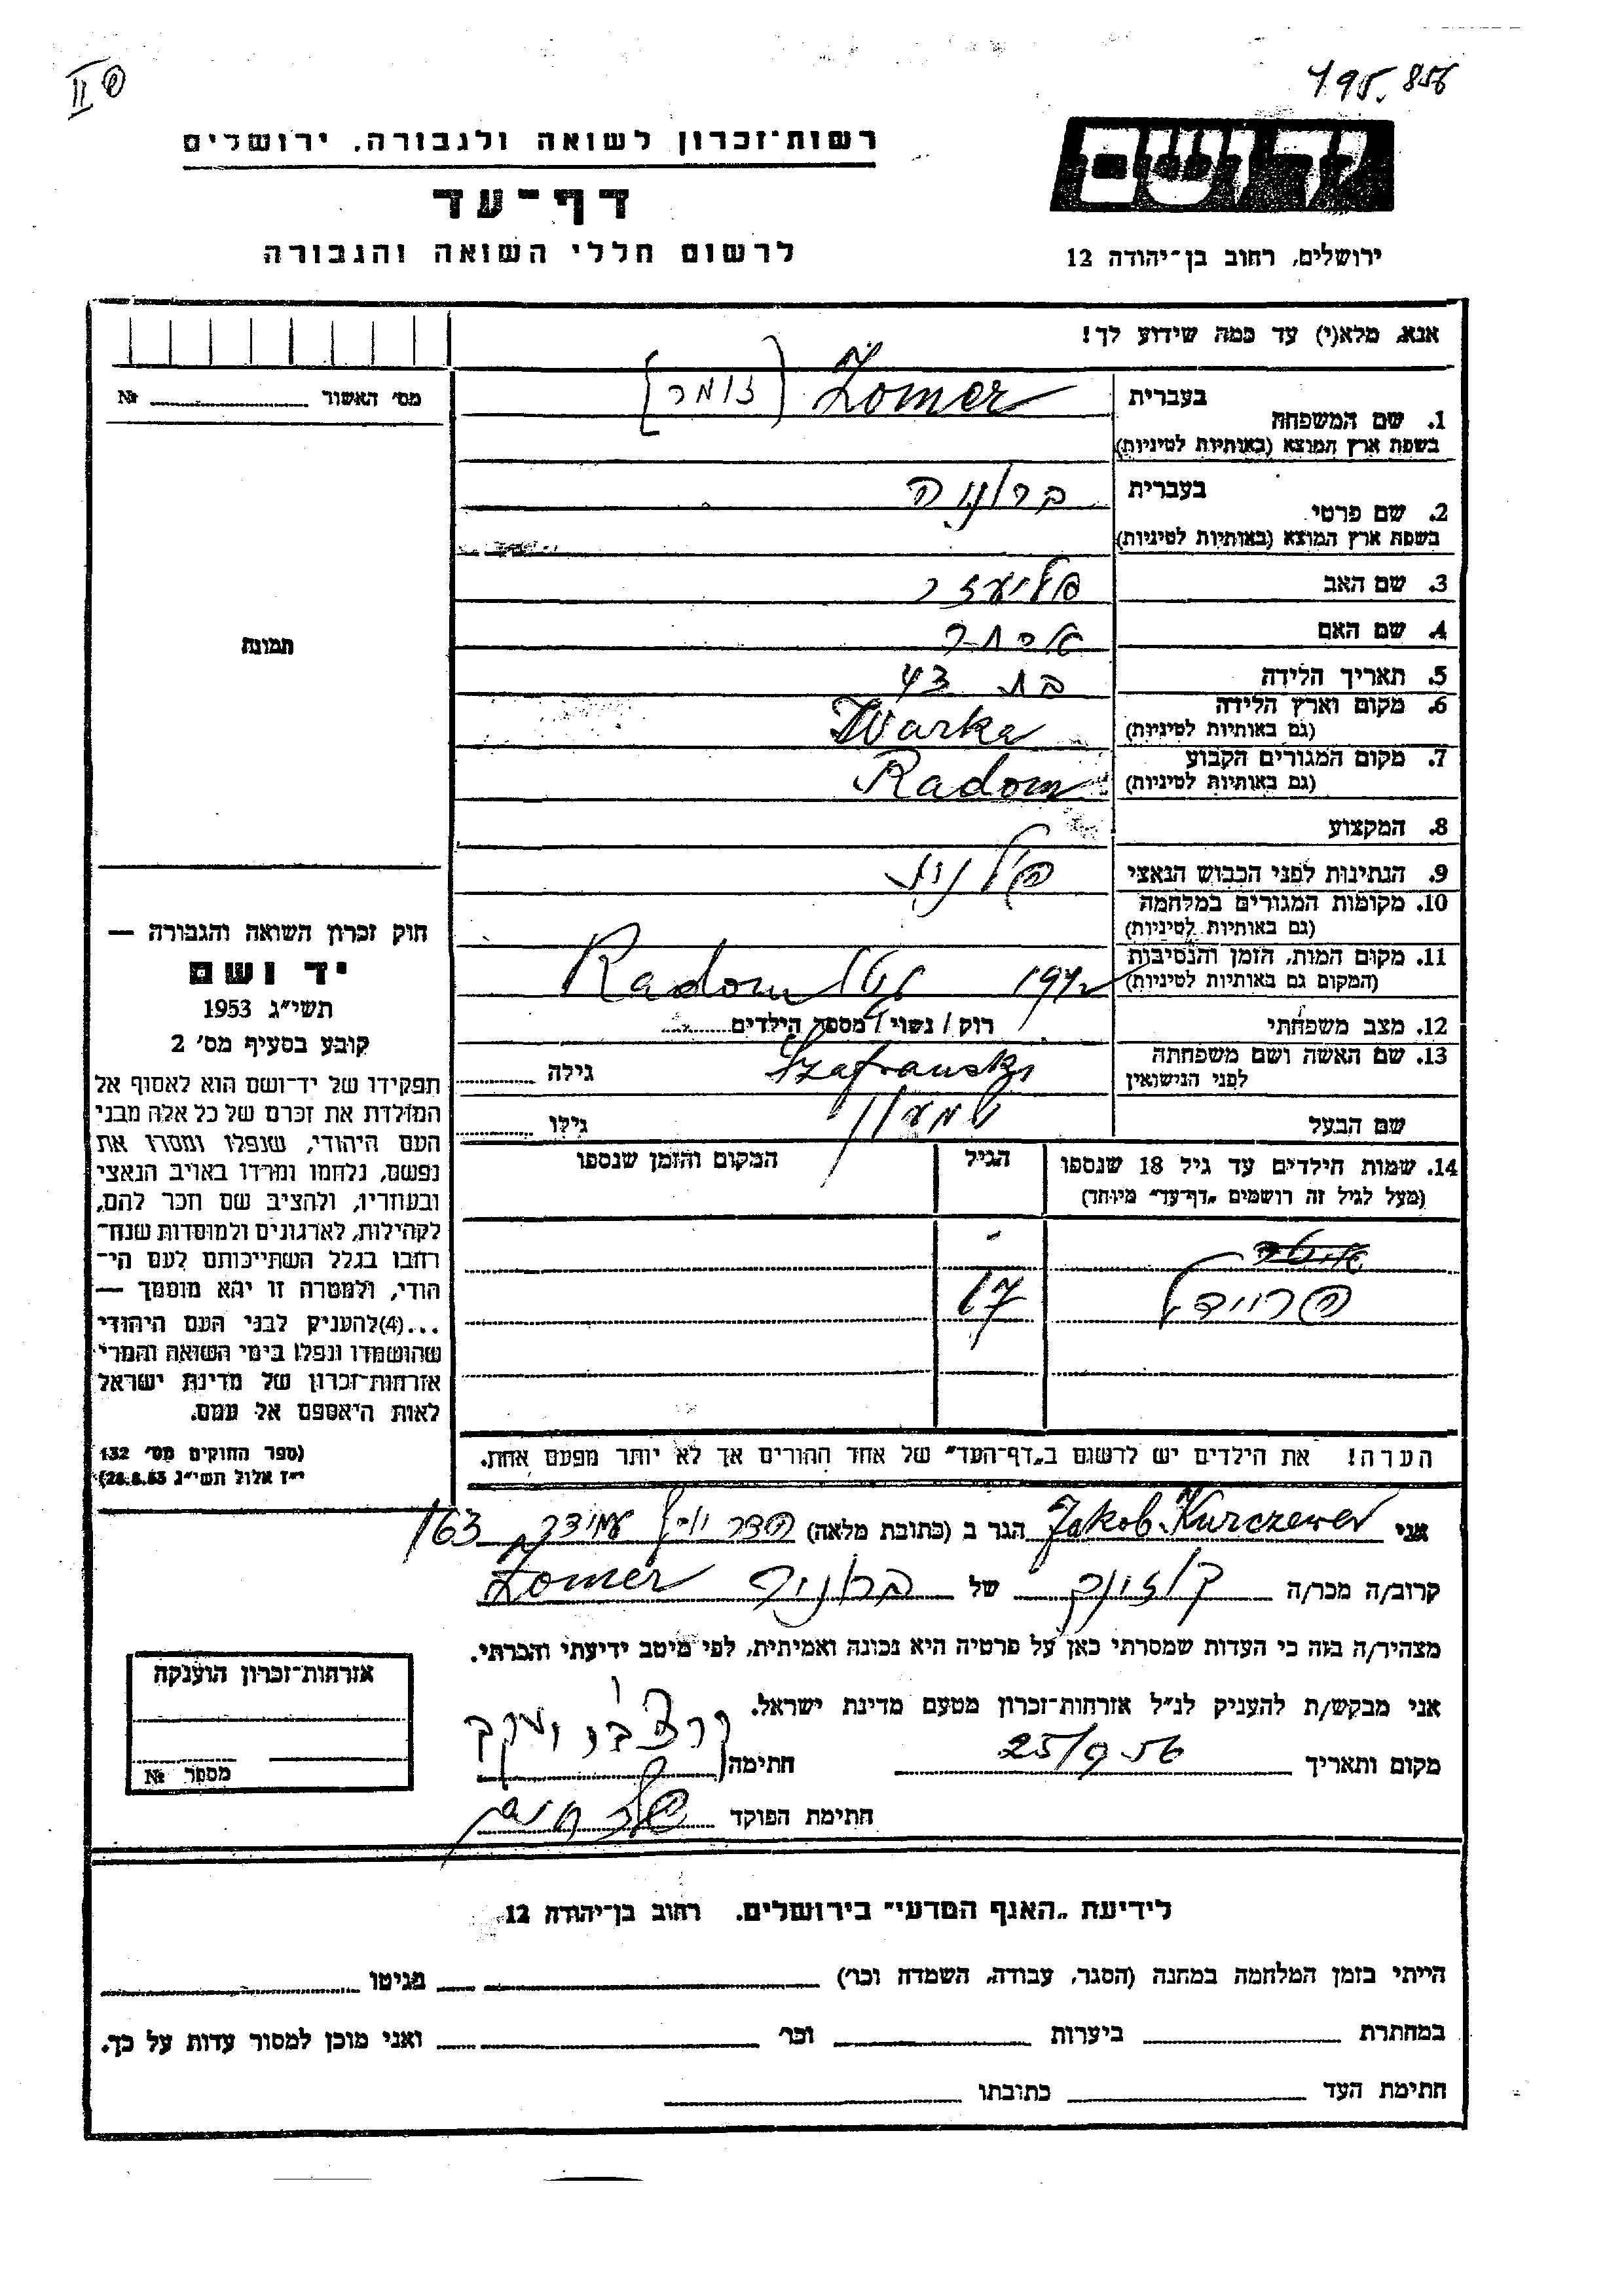 195.856
II
רשות־זכרון לשואה ולגבורה, ירושלים
דף־עד
לרשום חללי השואה והגבורה
יד ושם
ירושלים, רחוב בן־יהודה 12
אנא, מלא(י) עד כמה שידוע לך!
מס׳ האשור № 
בעברית Zomer [זומר]
1. שם המשפחה
בשפת ארץ המוצא (באותיות לטיניות)
בעברית ברוניה
2. שם פרטי
בשפת ארץ המוצא (באותיות לטיניות)
3. שם האב אליעזר
4. שם האם אסתר
תמונה
5. תאריך הלידה בת 43
6. מקום וארץ הלידה
(גם באותיות לטיניות) Warka
7. מקום המגורים הקבוע
(גם באותיות לטיניות) Radom
8. המקצוע
9. הנתינות לפני הכבוש הנאצי פולנית
10. מקומות המגורים במלחמה
(גם באותיות לטיניות)
11. מקום המות, הזמן והנסיבות
(המקום גם באותיות לטיניות) 1942 גטו Radom
12. מצב משפחתי רוק / נשוי / מספר הילדים
13. שם האשה ושם משפחתה
לפני הנישואין Szafranski גילה
שם הבעל שמעון גילו
14. שמות הילדים עד גיל 18 שנספו הגיל המקום והזמן שנספו
(מעל לגיל זה רושמים „דף־עד״ מיוחד)
פריידל 17
הערה! את הילדים יש לרשום ב„דף־העד״ של אחד ההורים אך לא יותר מפעם אחת.
חוק זכרון השואה והגבורה —
יד ושם
תשי״ג 1953
קובע בסעיף מס׳ 2
תפקידו של יד־ושם הוא לאסוף אל
המולדת את זכרם של כל אלה מבני
העם היהודי, שנפלו ומסרו את
נפשם, נלחמו ומרדו באויב הנאצי
ובעוזריו, ולהציב שם וזכר להם,
לקהילות, לארגונים ולמוסדות שנח־
רבו בגלל השתייכותם לעם הי־
הודי, ולמטרה זו יהא מוסמך —
...(4) להעניק לבני העם היהודי
שהושמדו ונפלו בימי השואה והמרי
אזרחות־זכרון של מדינת ישראל
לאות היאספם אל עמם.
(ספר החוקים מס׳ 132
י״ז אלול תשי״ג 28.8.53)
אני Jakob Kurczewer הגר ב (כתובת מלאה) הדר יוסף עמידר 163
קרוב/ה מכר/ה של ברוניה Zomer
מצהיר/ה בזה כי העדות שמסרתי כאן על פרטיה היא נכונה ואמיתית, לפי מיטב ידיעתי והכרתי.
אני מבקש/ת להעניק לנ״ל אזרחות־זכרון מטעם מדינת ישראל.
מקום ותאריך 25/9 56 חתימה
חתימת הפוקד
אזרחות־זכרון הוענקה
מספר №
לידיעת „האגף המדעי״ בירושלים. רחוב בן־יהודה 12
הייתי בזמן המלחמה במחנה (הסגר, עבודה, השמדה וכו׳) בגיטו
במחתרת ביערות וכו׳ ואני מוכן למסור עדות על כך.
חתימת העד כתובתו